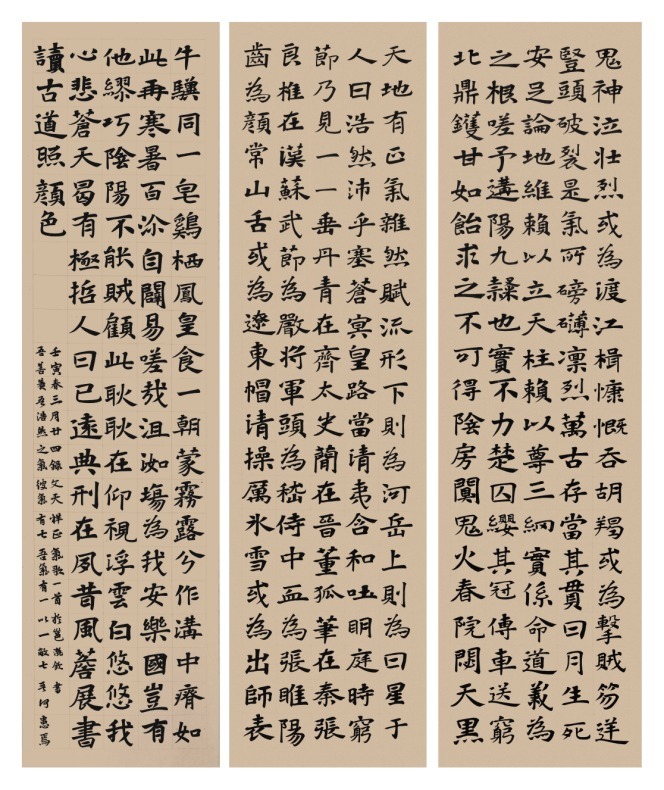 天地有正氣雜然賦流形下則為河岳上則為日星于
人曰浩然沛乎塞蒼冥皇路當清夷含和吐明庭時窮
節乃見一一垂丹青在齊太史簡在晉董狐筆在秦張
良椎在漢蘇武節為嚴將軍頭為嵇侍中血為張睢陽
齒為顏常山舌或為遼東帽清操厲冰雪或為出師表
鬼神泣壯烈或為渡江楫慷慨吞胡羯或為擊賊笏逆
豎頭破裂是氣所磅礴凜烈萬古存當其貫日月生死
安足論地維賴以立天柱賴以尊三綱實係命道義為
之根嗟予遘陽九隸也實不力楚囚纓其冠傳車送窮
北鼎鑊甘如飴求之不可得陰房闃鬼火春院閟天黑
牛驥同一皂雞栖鳳皇食一朝蒙霧露兮作溝中瘠如
此再寒暑百沴自闢易嗟哉沮洳場為我安樂國豈有
他繆巧陰陽不能賊顧此耿耿在仰視浮雲白悠悠我
心悲蒼天曷有極哲人日已遠典刑在夙昔風簷展書
讀古道照顏色
壬寅春三月廿四錄文天祥正氣歌一首於邕書
吾善養吾浩然之氣彼氣有七吾氣有一以一敵七吾何患焉